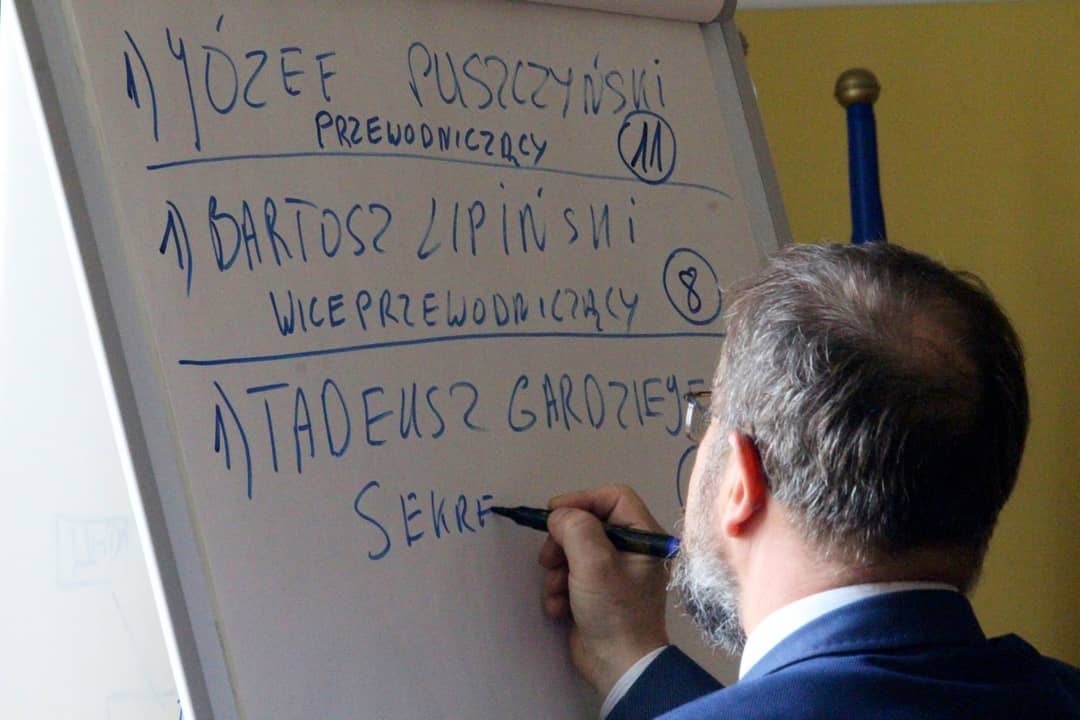 1) JÓZEF PUSZCZYŃSKI
PRZEWODNICZĄCY 11
1) BARTOSZ LIPIŃSKI
WICEPRZEWODNICZĄCY 8
1) TADEUSZ GARDZIEJE
SEKRE